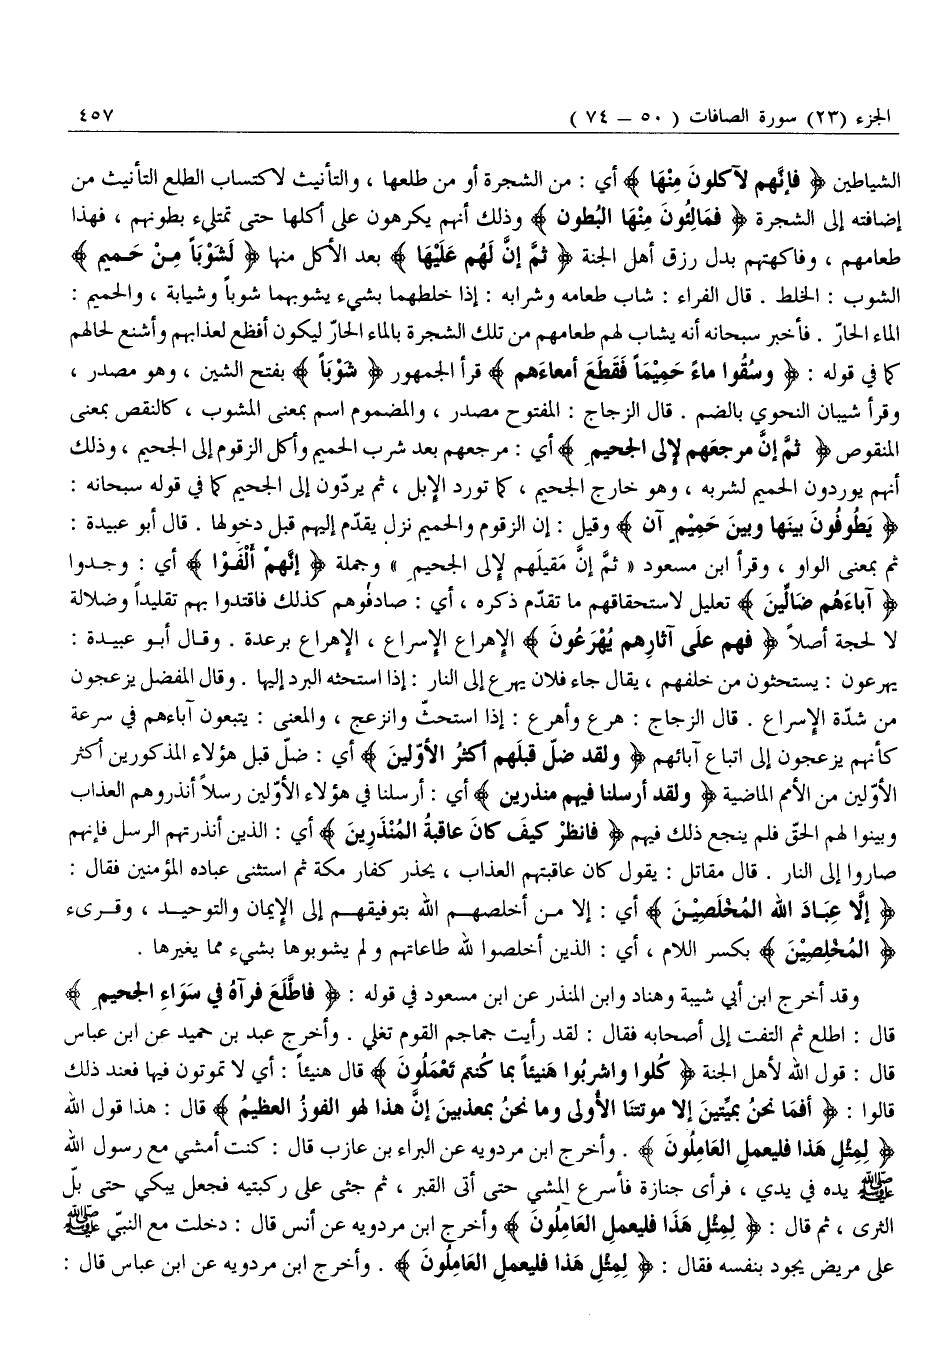 الجزء (٢٣) سورة الصافات ( ٥٠ – ٧٤ ) ٤٥٧
الشياطين ﴿ فإنَّهم لآكلونَ مِنْها ﴾ أي : من الشجرة أو من طلعها ، والتأنيث لاكتساب الطلع التأنيث من
إضافته إلى الشجرة ﴿ فمَالِئُونَ مِنْهَا البُطون ﴾ وذلك أنهم يكرهون على أكلها حتى تمتلىء بطونهم ، فهذا
طعامهم ، وفاكهتهم بدل رزق أهل الجنة ﴿ ثمَّ إنَّ لَهُم عَلَيْهَا ﴾ بعد الأكل منها ﴿ لَشَوْبَاً مِنْ حَميم ﴾
الشوب : الخلط . قال الفراء : شاب طعامه وشرابه : إذا خلطهما بشيء يشوبهما شوباً وشيابة ، والحميم :
الماء الحارّ . فأخبر سبحانه أنه يشاب لهم طعامهم من تلك الشجرة بالماء الحارّ ليكون أفظع لعذابهم وأشنع لحالهم
كما في قوله : ﴿ وسُقُوا ماءً حَمِيْمَاً فَقَطَعَ أمعاءَهم ﴾ قرأ الجمهور ﴿ شَوْبَاً ﴾ بفتح الشين ، وهو مصدر ،
وقرأ شيبان النحوي بالضم . قال الزجاج : المفتوح مصدر ، والمضموم اسم بمعنى المشوب ، كالنقص بمعنى
المنقوص ﴿ ثمَّ إنَّ مرجعَهم لإلى الجحيمِ ﴾ أي : مرجعهم بعد شرب الحميم وأكل الزقوم إلى الجحيم ، وذلك
أنهم يوردون الحميم لشربه ، وهو خارج الجحيم ، كما تورد الإبل ، ثم يردّون إلى الجحيم كما في قوله سبحانه :
﴿ يَطُوفُونَ بينَها وبينَ حَمِيْمٍ آن ﴾ وقيل : إن الزقوم والحميم نزل يقدّم إليهم قبل دخولها . قال أبو عبيدة :
ثم بمعنى الواو ، وقرأ ابن مسعود « ثمَّ إنَّ مَقيلَهم لإلى الجحيمِ » وجملة ﴿ إنَّهمْ أَلْفَوْا ﴾ أي : وجدوا
﴿ آباءَهُم ضَالِّينَ ﴾ تعليل لاستحقاقهم ما تقدّم ذكره ، أي : صادفوهم كذلك فاقتدوا بهم تقليداً وضلالة
لا لحجة أصلاً ﴿ فهم علَى آثارِهم يُهْرَعُونَ ﴾ الإهراع الإسراع ، الإهراع برعدة . وقال أبو عبيدة :
يهرعون : يستحثون من خلفهم ، يقال جاء فلان يهرع إلى النار : إذا استحثه البرد إليها . وقال المفضل يزعجون
من شدّة الإسراع . قال الزجاج : هرع وأهرع : إذا استحثّ وانزعج ، والمعنى : يتبعون آباءهم في سرعة
كأنهم يزعجون إلى اتباع آبائهم ﴿ ولقد ضلّ قبلَهم أكثرُ الأوّلينَ ﴾ أي : ضلّ قبل هؤلاء المذكورين أكثر
الأوّلين من الأمم الماضية ﴿ ولقد أرسلنا فيهم منذرين ﴾ أي : أرسلنا في هؤلاء الأوّلين رسلاً أنذروهم العذاب
وبينوا لهم الحقّ فلم ينجع ذلك فيهم ﴿ فانظرْ كيفَ كانَ عاقبةُ المُنْذَرِينَ ﴾ أي : الذين أنذرتهم الرسل فإنهم
صاروا إلى النار . قال مقاتل : يقول كان عاقبتهم العذاب ، يحذر كفار مكة ثم استثنى عباده المؤمنين فقال :
﴿ إلَّا عِبَادَ الله المُخْلَصِيْنَ ﴾ أي : إلا من أخلصهم الله بتوفيقهم إلى الإيمان والتوحيد ، وقرىء
﴿ المُخْلِصِيْنَ ﴾ بكسر اللام ، أي : الذين أخلصوا لله طاعاتهم ولم يشوبوها بشيء مما يغيرها .
وقد أخرج ابن أبي شيبة وهناد وابن المنذر عن ابن مسعود في قوله : ﴿ فاطَّلَعَ فرآهُ في سَوَاءِ الجحيمِ ﴾
قال : اطلع ثم التفت إلى أصحابه فقال : لقد رأيت جماجم القوم تغلي . وأخرج عبد بن حميد عن ابن عباس
قال : قول الله لأهل الجنة ﴿ كُلوا واشربُوا هَنيئاً بما كُنتم تَعْمَلُونَ ﴾ قال هنيئاً : أي لا تموتون فيها فعند ذلك
قالوا : ﴿ أفمَا نحنُ بميِّتينَ إلا موتتنَا الأُولى وما نحنُ بمعذبينَ إنَّ هذا لهو الفوزُ العظيمُ ﴾ قال : هذا قول الله
﴿ لِمِثْلِ هَذا فليعملِ العَامِلُونَ ﴾ . وأخرج ابن مردويه عن البراء بن عازب قال : كنت أمشي مع رسول الله
ﷺ يده في يدي ، فرأى جنازة فأسرع المشي حتى أتى القبر ، ثم جثى على ركبتيه فجعل يبكي حتى بلّ
الثرى ، ثم قال : ﴿ لِمِثْلِ هَذَا فليعملِ العَامِلُونَ ﴾ وأخرج ابن مردويه عن أنس قال : دخلت مع النبّي ﷺ
على مريض يجود بنفسه فقال : ﴿ لِمِثْلِ هَذا فليعملِ العَامِلُونَ ﴾ . وأخرج ابن مردويه عن ابن عباس قال :